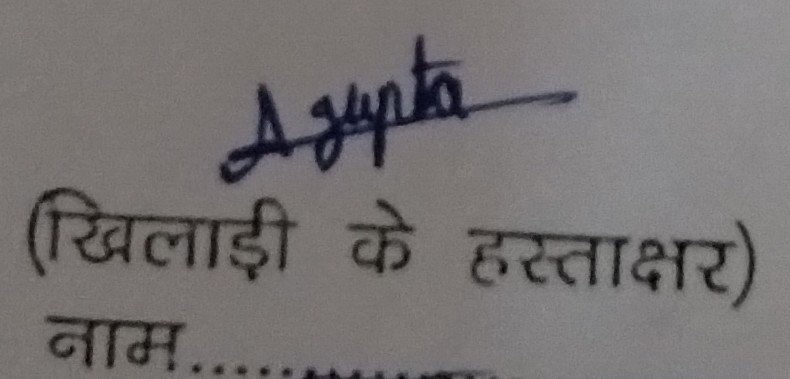 A gupta
(खिलाड़ी के हस्ताक्षर)
नाम..............